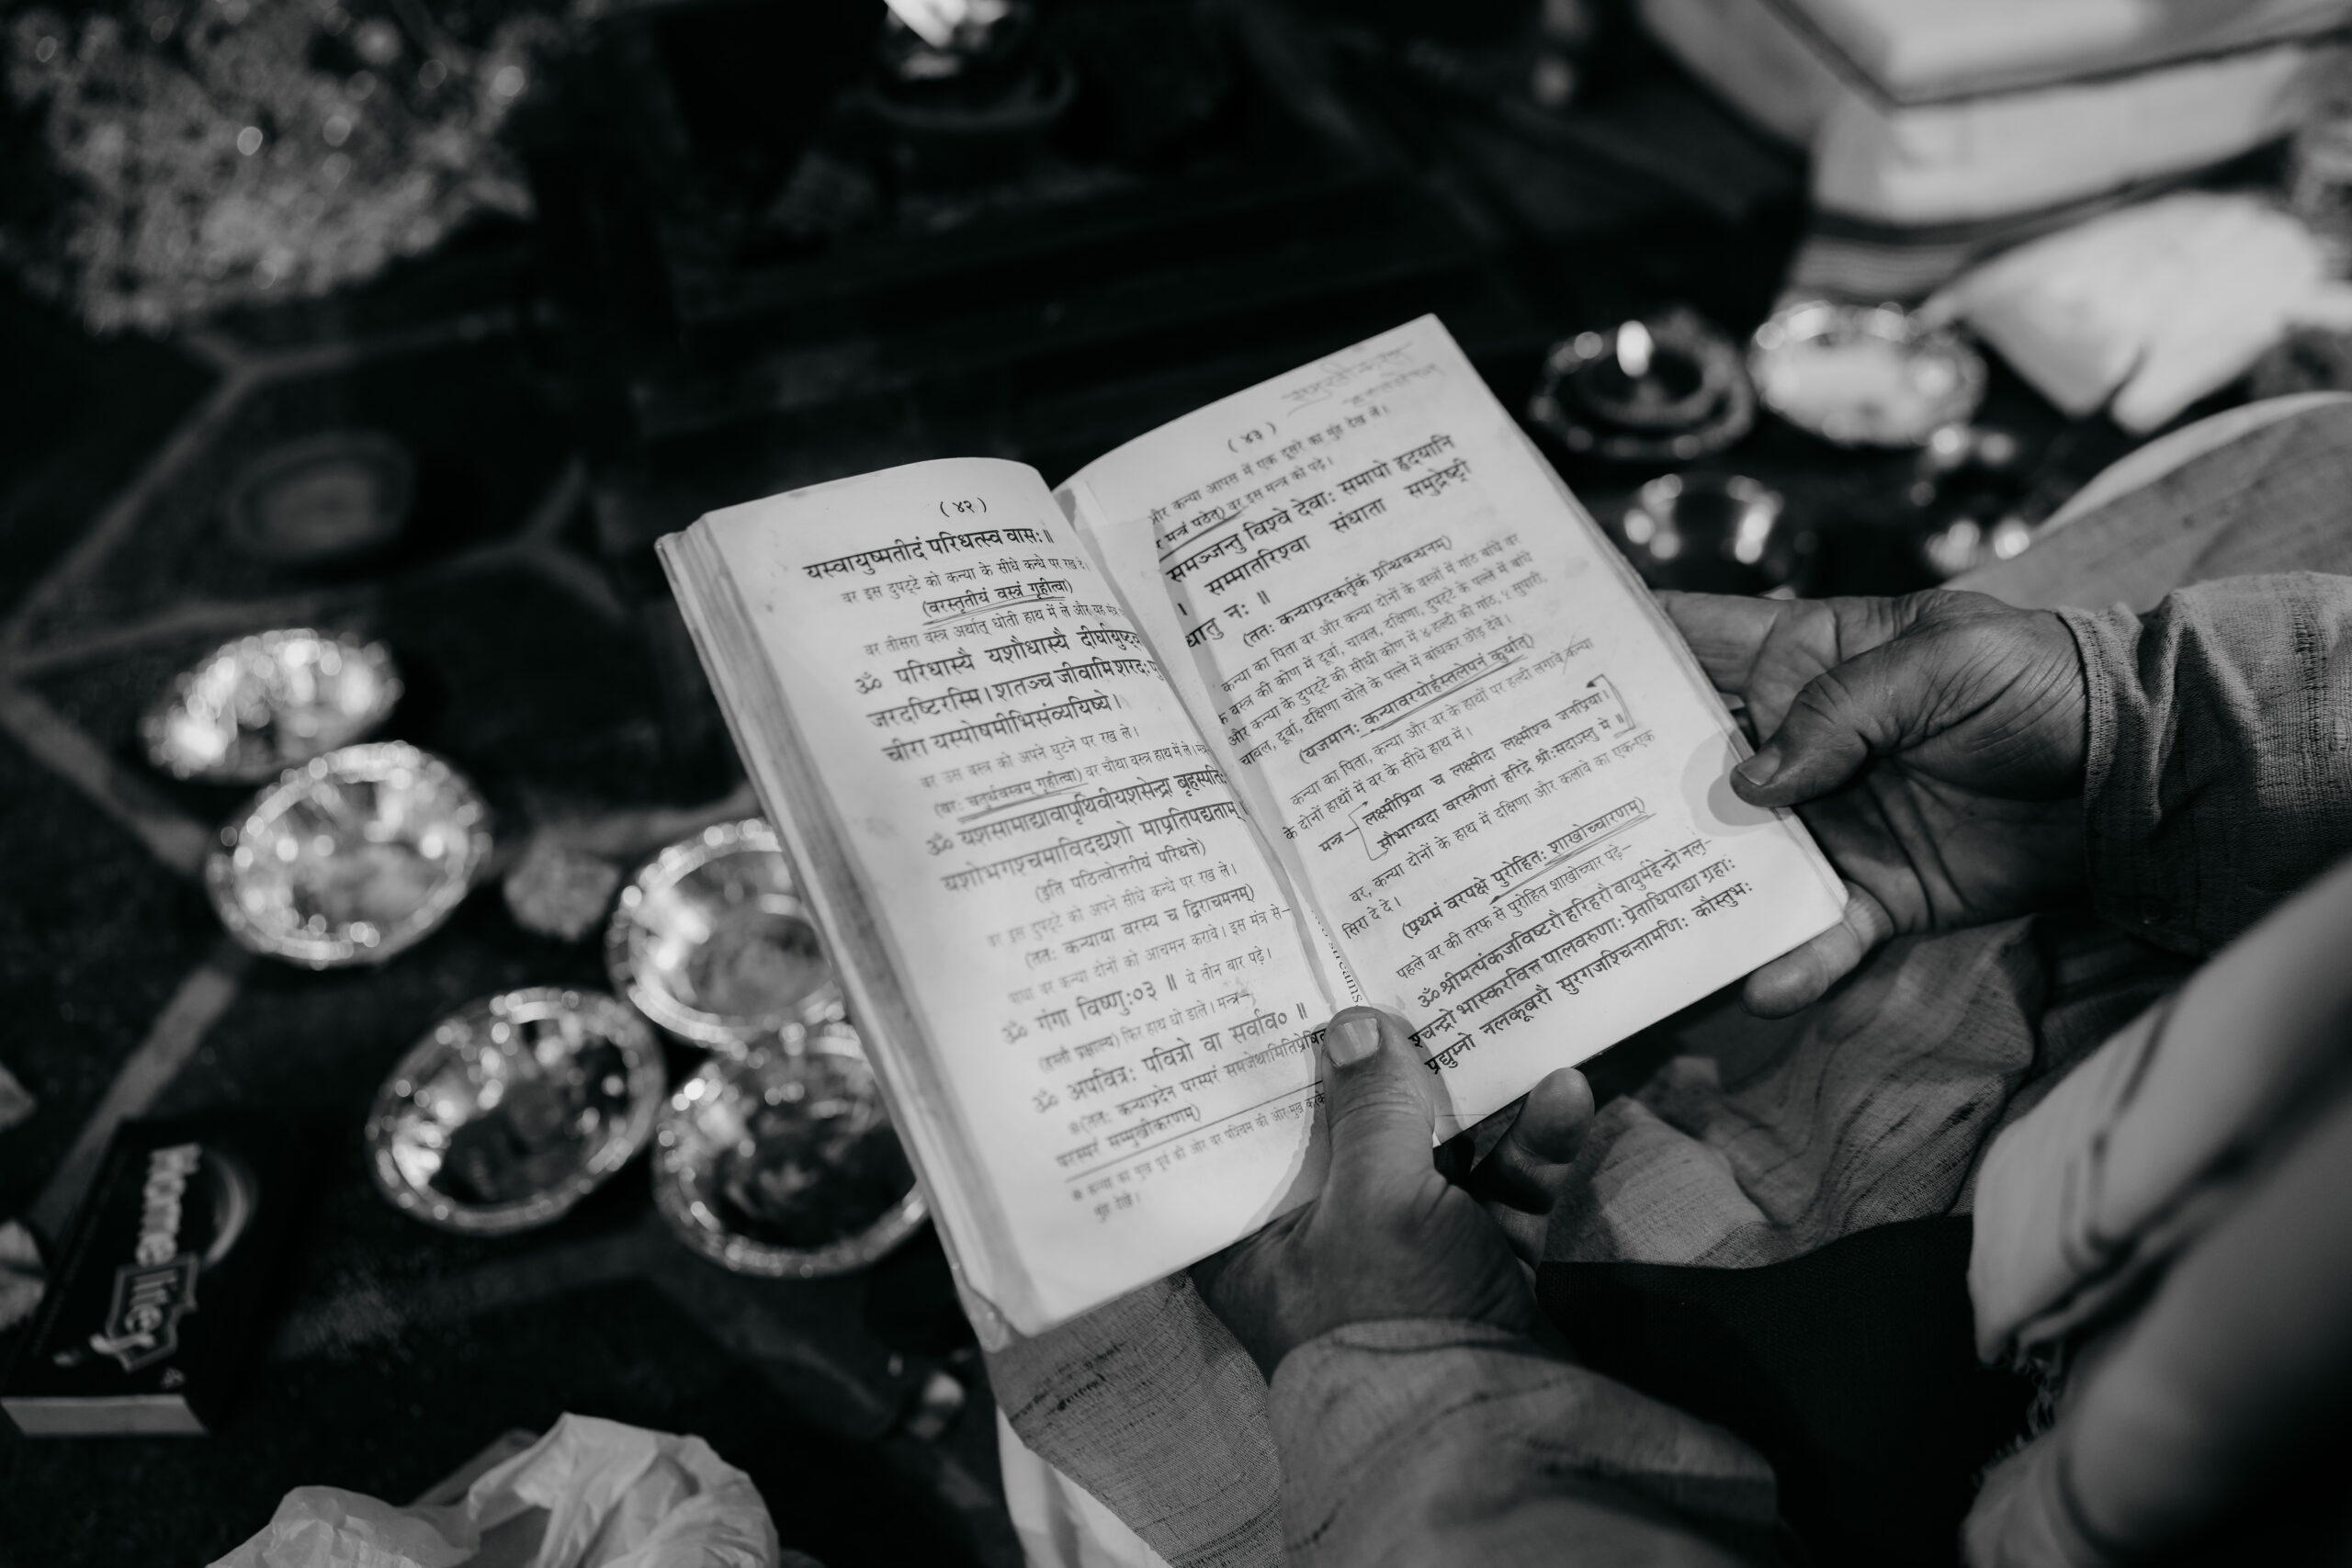 ( ४२ )
यस्वायुष्मतीदं परिधत्स्व वासः॥
वर इस दुपट्टे को कन्या के सीधे कन्धे पर रख दे।
(वरस्तृतीयं वस्त्रं गृहीत्वा)
वर तीसरा वस्त्र अर्थात् धोती हाथ में ले और यह मंत्र
ॐ परिधास्यै यशोधास्यै दीर्घायुष्ट्व
जरदष्टिरस्मि। शतञ्च जीवामि शरदः पु
चीरा यस्पोषमीभिसंव्ययिष्ये।
वर उस वस्त्र को अपने घुटने पर रख ले।
(वरः चतुर्थवस्त्रम् गृहीत्वा) वर चौथा वस्त्र हाथ में ले।
ॐ यशसामाद्यावापृथिवीयशसेन्द्रा बृहस्पतिः
यशोभगश्चमाविदद्यशो माप्रतिपद्यताम्।
(इति पठित्वोत्तरीयं परिधत्ते)
वर इस दुपट्टे को अपने सीधे कन्धे पर रख ले।
(ततः कन्याया वरस्य च द्विराचमनम्)
वर कन्या दोनों को आचमन करावे। इस मंत्र से—
ॐ गंगा विष्णुः०३ ॥ ये तीन बार पढ़े।
(हस्तौ प्रक्षाल्य) फिर हाथ धो डाले। मन्त्र—
ॐ अपवित्रः पवित्रो वा सर्वाव० ॥
(ततः कन्याप्रदेन परस्परं समञ्जेथामितिप्रेषित
परस्परं सम्मुखीकरणम्)
कन्या का मुख पूर्व की ओर वर पश्चिम की ओर मुख करके
मुंह देखे।
( ४३ )
और कन्या आपस में एक दूसरे का मुंह देख लें।
मन्त्रं पठेत्) वर इस मन्त्र को पढ़े।
समञ्जन्तु विश्वे देवाः समापो हृदयानि
। सम्मातरिश्वा संधाता समुद्रेष्ट्री
धातु नः ॥
(ततः कन्याप्रदकर्तृकं ग्रन्थिबन्धनम्)
कन्या का पिता वर और कन्या दोनों के वस्त्रों में गांठ बांधे वर
के वस्त्र की कोण में दूर्वा, चावल, दक्षिणा, दुपट्टे के पल्ले में बांधे
और कन्या के दुपट्टे की सीधी कोण में ४ हल्दी की गांठ, १ सुपारी,
चावल, दूर्वा, दक्षिणा चोले के पल्ले में बांधकर छोड़ देवे।
(यजमानः कन्यावरयोर्हस्तलेपनं कुर्यात्)
कन्या का पिता, कन्या और वर के हाथों पर हल्दी लगावे कन्या
के दोनों हाथों में वर के सीधे हाथ में।
मन्त्र— लक्ष्मीप्रिया च लक्ष्मीदा लक्ष्मीश्च जनप्रिया।
सौभाग्यदा वरस्त्रीणां हरिद्रे श्रीःसदाऽस्तु मे ॥
वर, कन्या दोनों के हाथ में दक्षिणा और कलावे का एक-एक
सिरा दे दे।
(प्रथमं वरपक्षे पुरोहितः शाखोच्चारणम्)
पहले वर की तरफ से पुरोहित शाखोच्चार पढ़े—
ॐ श्रीमत्पंकजविष्टरौ हरिहरौ वायुर्महेन्द्रो नल-
श्चन्द्रो भास्करवित्त पालवरुणाः प्रेताधिपाद्या ग्रहाः
प्रद्युम्नो नलकूबरौ सुरगजश्चिन्तामणिः कौस्तुभः
streams
Home lites